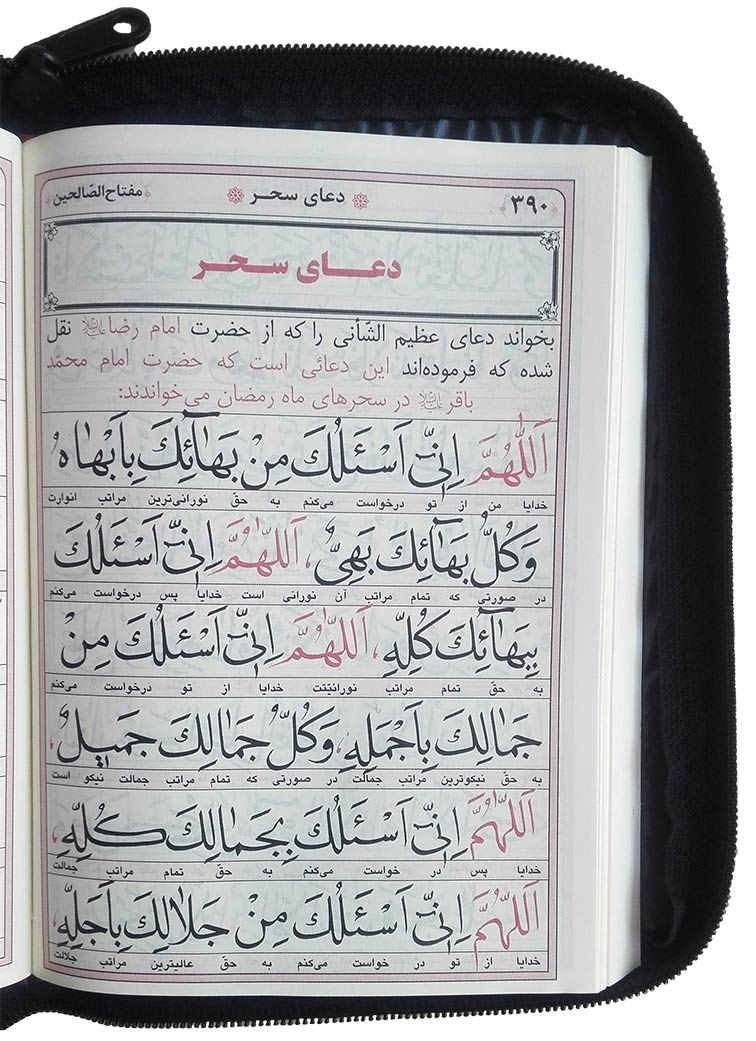 ۳۹۰ دعای سحر مفتاح الصّالحین
دعـای سـحـر
بخواند دعای عظیم الشّأنی را که از حضرت امام رضا علیه‌السلام نقل
شده که فرموده‌اند این دعائی است که حضرت امام محمّد
باقر علیه‌السلام در سحرهای ماه رمضان می‌خواندند:
اَللّٰهُمَّ اِنّیٓ اَسْئَلُكَ مِنْ بَهآئِكَ بِاَبْهاهُ
خدایا من از تو درخواست می‌کنم به حقّ نورانی‌ترین مراتب انوارت
وَكُلُّ بَهآئِكَ بَهِىٌّ، اَللّٰهُمَّ اِنّیٓ اَسْئَلُكَ
در صورتی که تمام مراتب آن نورانی است خدایا پس درخواست می‌کنم
بِبَهآئِكَ كُلِّهِ، اَللّٰهُمَّ اِنّیٓ اَسْئَلُكَ مِنْ
به حقّ تمام مراتب نورانیّتت خدایا از تو درخواست می‌کنم
جَمالِكَ بِاَجْمَلِهِ، وَكُلُّ جَمالِكَ جَميلٌ،
به حقّ نیکوترین مراتب جمالت در صورتی که تمام مراتب جمالت نیکو است
اَللّٰهُمَّ اِنّیٓ اَسْئَلُكَ بِجَمالِكَ كُلِّهِ،
خدایا پس در خواست می‌کنم به حقّ تمام مراتب جمالت
اَللّٰهُمَّ اِنّیٓ اَسْئَلُكَ مِنْ جَلالِكَ بِاَجَلِّهِ،
خدایا از تو در خواست می‌کنم به حقّ عالیترین مراتب جلالت